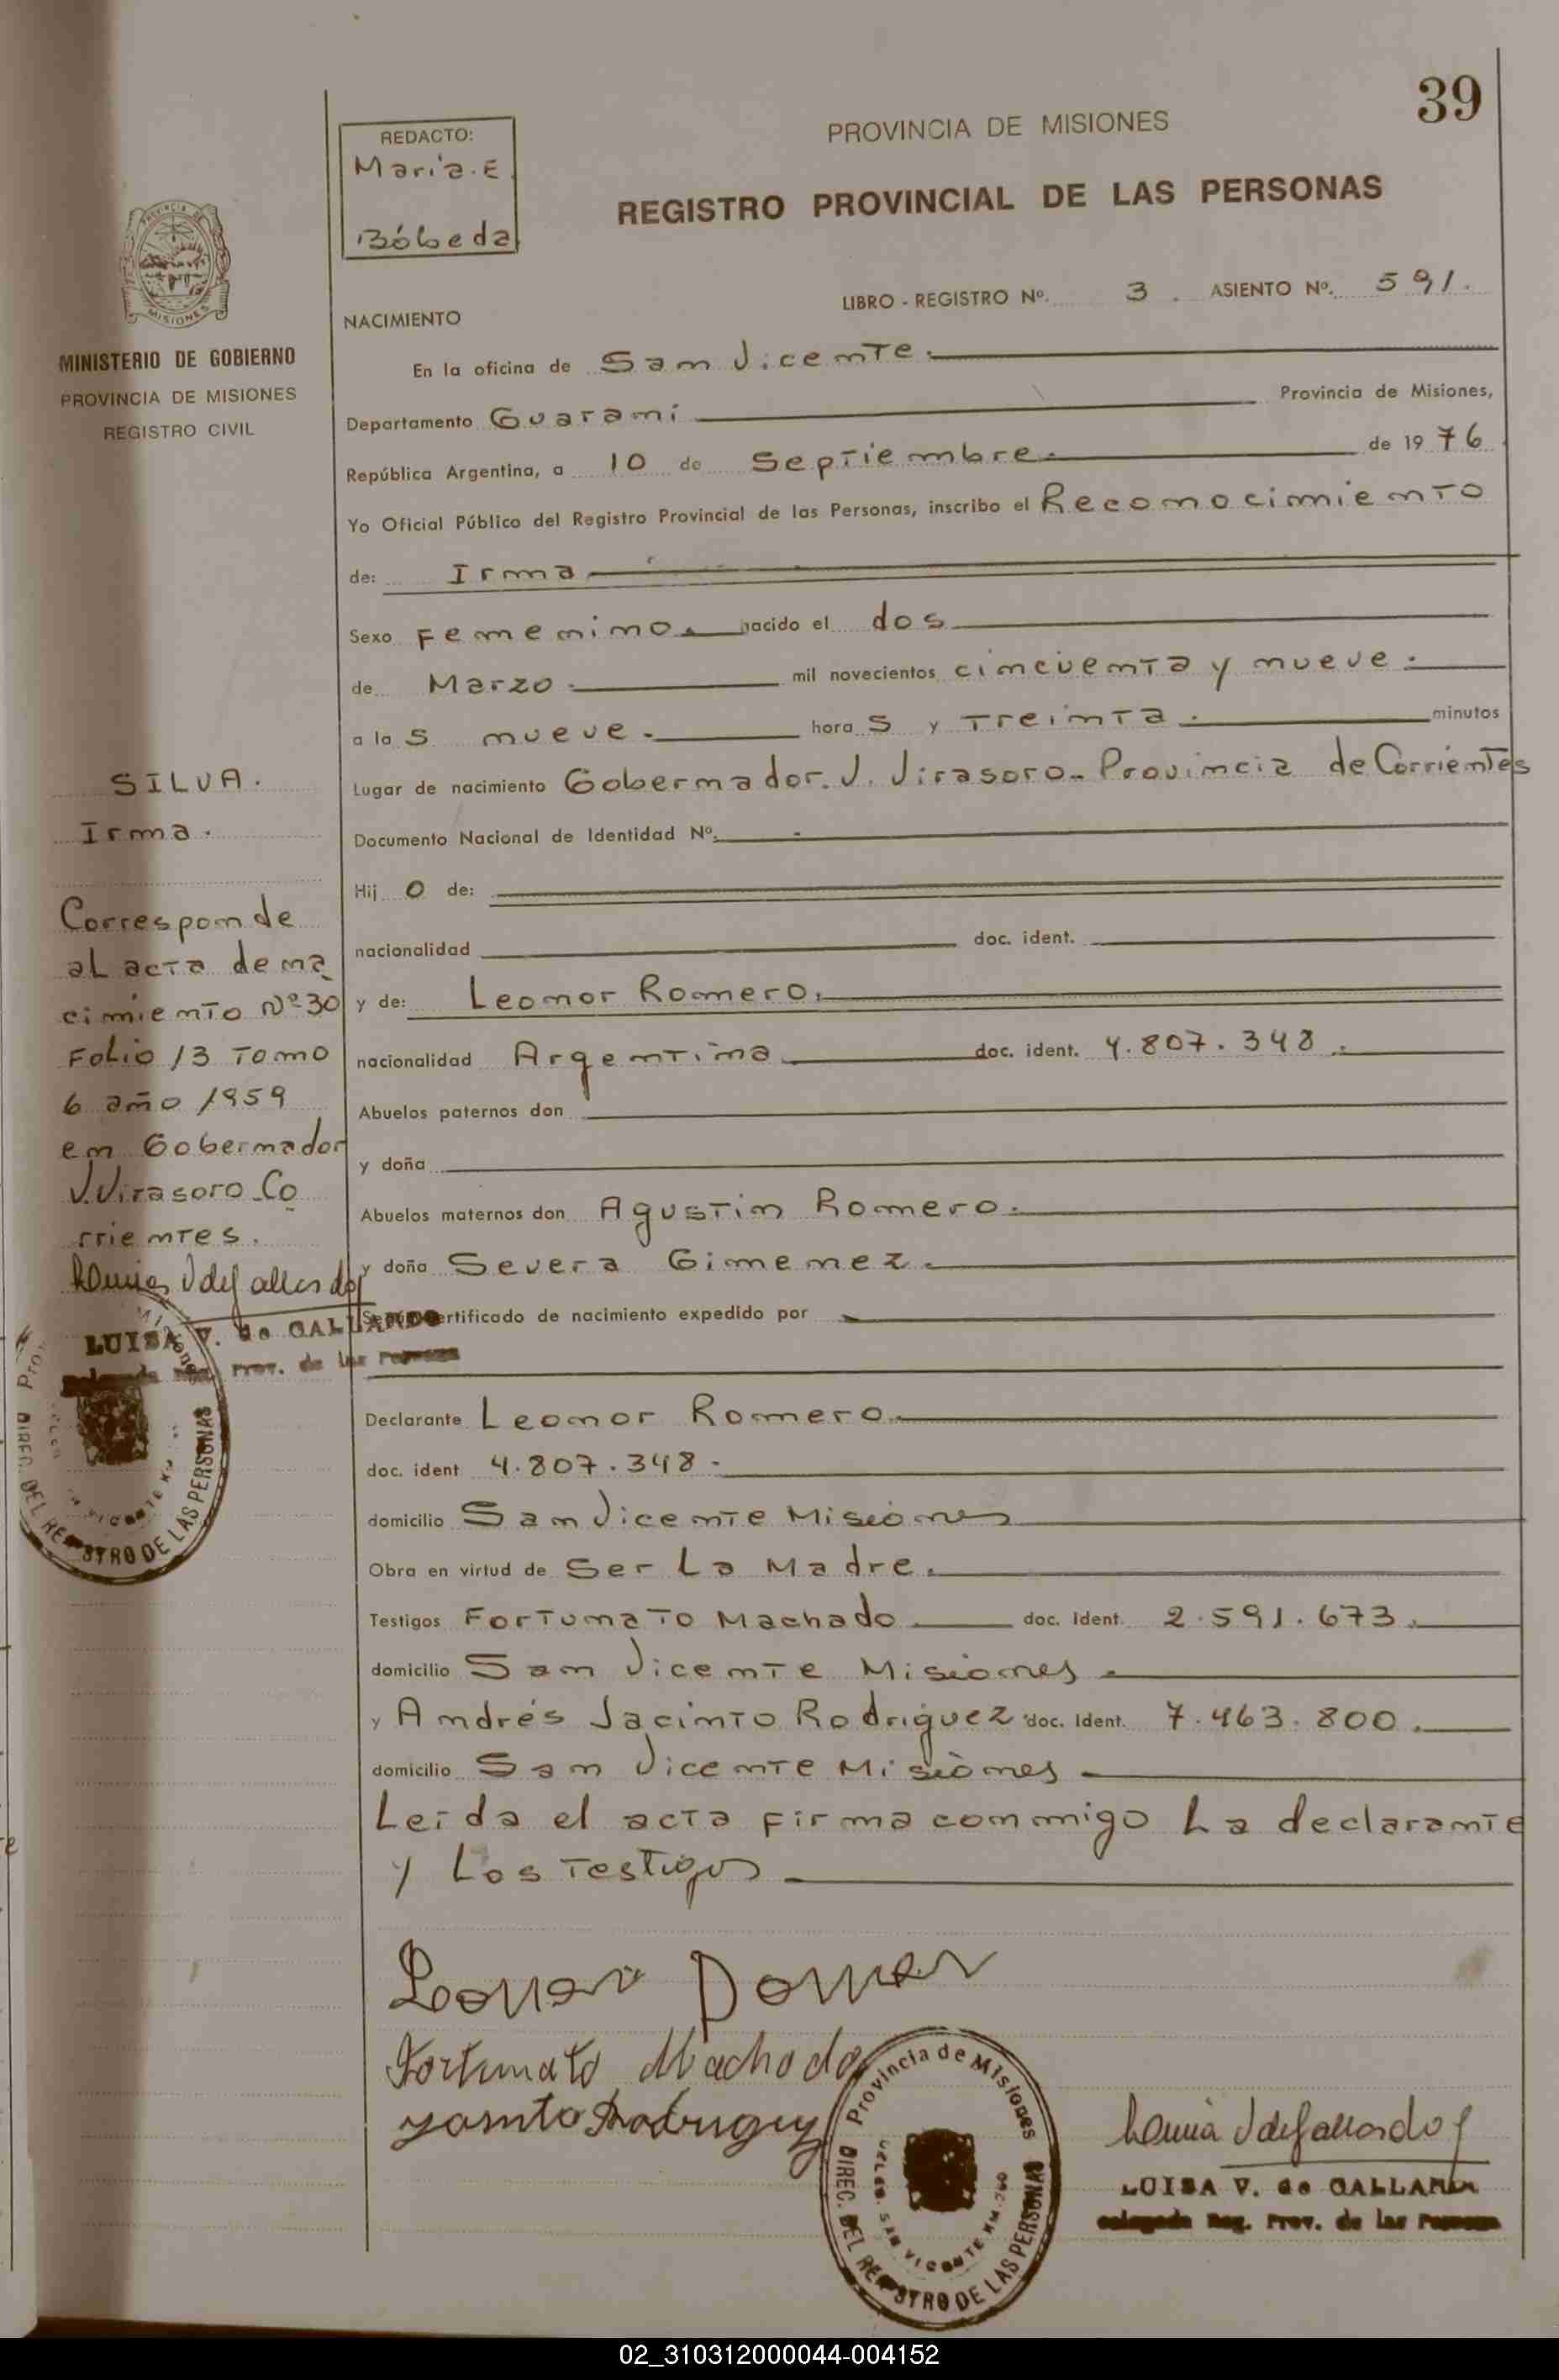 39
REDACTO:
María. E.
Bóbeda
PROVINCIA DE MISIONES
REGISTRO PROVINCIAL DE LAS PERSONAS
LIBRO - REGISTRO Nº. 3. ASIENTO Nº. 591.
MISIONES
MINISTERIO DE GOBIERNO
PROVINCIA DE MISIONES
REGISTRO CIVIL
SILVA.
Irma.
Corresponde
al acta de na
cimiento Nº 30
Folio 13 Tomo
6 año 1959
en Gobernador
V. Virasoro Co
rrientes.
LUISA V. de GALLARDO
Prov. de las
DIREC. DEL REGISTRO DE LAS PERSONAS
NACIMIENTO
En la oficina de San Vicente.
Departamento Guaraní Provincia de Misiones,
República Argentina, a 10 de Septiembre. de 1976
Yo Oficial Público del Registro Provincial de las Personas, inscribo el Reconocimiento
de: Irma
Sexo Femenino. nacido el dos
de Marzo. mil novecientos cincuenta y nueve.
a las nueve. horas y Treinta. minutos
Lugar de nacimiento Gobernador. V. Virasoro. Provincia de Corrientes
Documento Nacional de Identidad Nº.
Hijo de:
nacionalidad doc. ident.
y de: Leonor Romero.
nacionalidad Argentina doc. ident. 4.807.348.
Abuelos paternos don
y doña
Abuelos maternos don Agustin Romero.
y doña Severa Gimenez.
Según certificado de nacimiento expedido por
Declarante Leonor Romero.
doc. ident 4.807.348.
domicilio San Vicente Misiones
Obra en virtud de Ser La Madre.
Testigos Fortunato Machado doc. Ident. 2.591.673.
domicilio San Vicente Misiones.
y Andrés Jacinto Rodríguez doc. Ident. 7.463.800.
domicilio San Vicente Misiones.
Leída el acta firma conmigo La declarante
y Los Testigos
Fortunato Machado
Provincia de Misiones
DIREC. DEL REGISTRO DE LAS PERSONAS
SAN VICENTE KM.
LUISA V. de GALLARDO
Delegada Reg. Prov. de las Personas
02_310312000044-004152